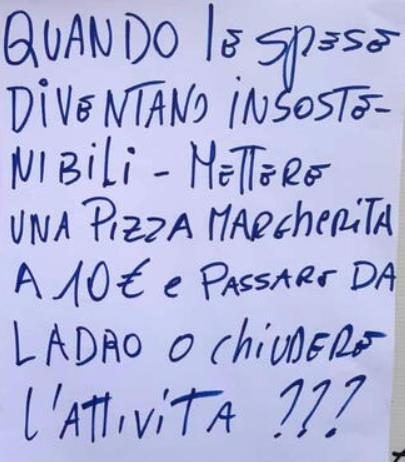 QUANDO le SPESE
DIVENTANO INSOSTE-
NIBILI - METTERE
UNA PIZZA MARGHERITA
A 10€ e PASSARE DA
LADRO O CHIUDERE
L'ATTIVITA ???